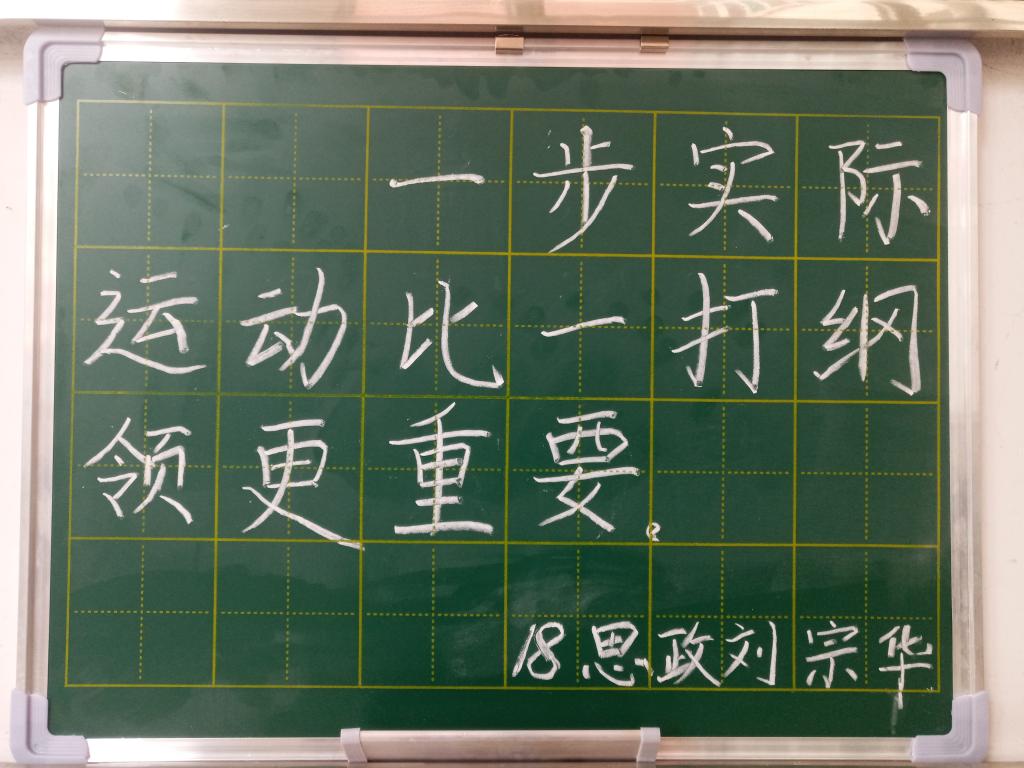 一步实际
运动比一打纲
领更重要。
18思政刘宗华